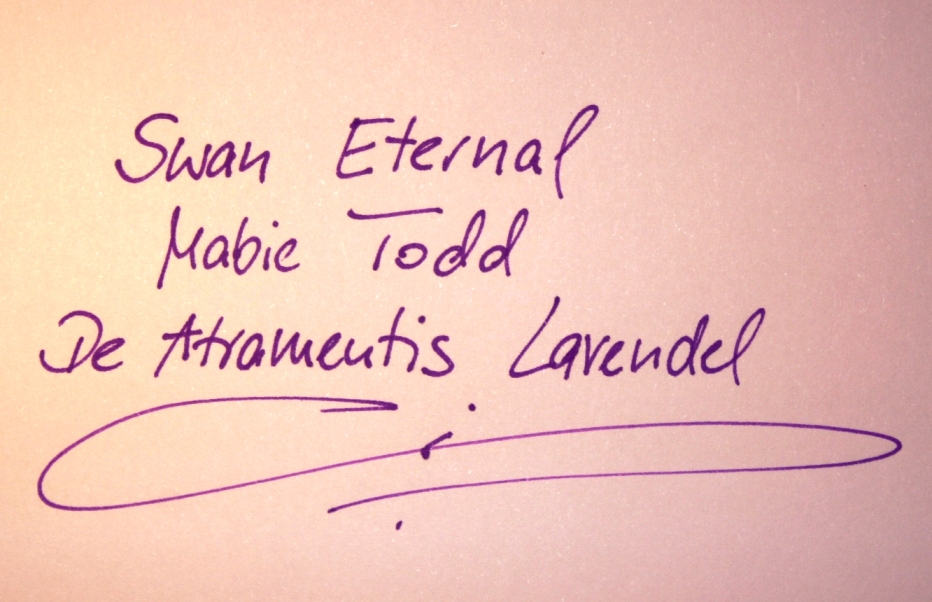 Swan Eternal
Mabie Todd
De Atramentis Lavendel